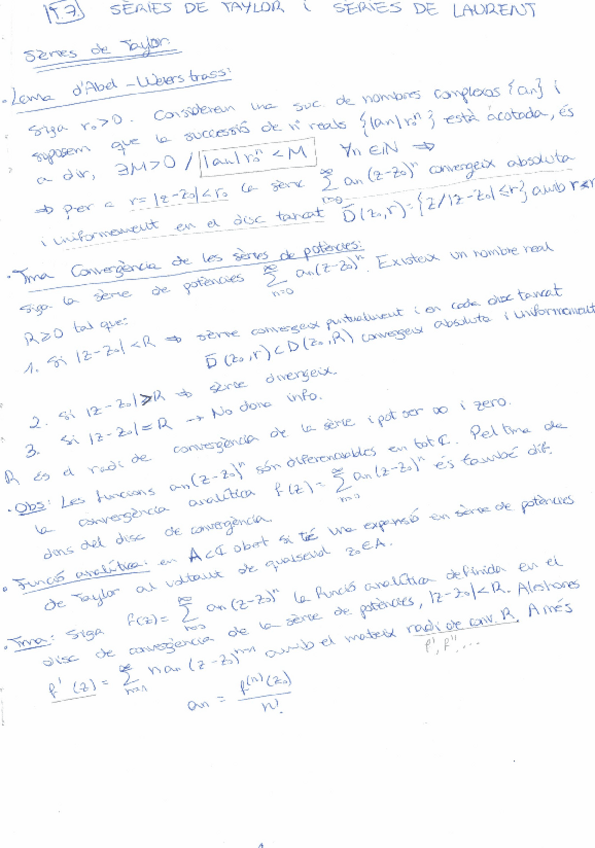 T.7. SÈRIES DE TAYLOR i SÈRIES DE LAURENT
Sèries de Taylor.
· Lema d'Abel - Weierstrass:
Siga r₀>0. Considerem una suc. de nombres complexos {an} i
suposem que la successió de nº reals {|an|r₀ⁿ} està acotada, és
a dir, ∃M>0 / |an|r₀ⁿ < M ∀n∈ℕ ⇒
⇒ per a r=|z-z₀|<r₀ la sèrie ∑_{n=0}^∞ an(z-z₀)ⁿ convergeix absoluta
i uniformement en el disc tancat D̄(z₀,r)={z/|z-z₀|≤r} amb r<r
· Tma Convergència de les sèries de potències:
Siga la sèrie de potències ∑_{n=0}^∞ an(z-z₀)ⁿ. Existeix un nombre real
R≥0 tal que:
1. Si |z-z₀|<R ⇒ sèrie convergeix puntualment i en cada disc tancat
D̄(z₀,r)⊂D(z₀,R) convergeix absoluta i uniformement
2. Si |z-z₀|>R ⇒ sèrie divergeix.
3. Si |z-z₀|=R → No dona info.
R és el radi de convergència de la sèrie i pot ser ∞ i zero.
· Obs: Les funcions an(z-z₀)ⁿ són diferenciables en tot ℂ. Pel tma de
la convergència analítica f(z)=∑_{n=0}^∞ an(z-z₀)ⁿ és també dif.
dins del disc de convergència.
· Funció analítica: en A⊂ℂ obert si té una expansió en sèrie de potències
de Taylor al voltant de qualsevol z₀∈A.
· Tma: Siga f(z)=∑_{n=0}^∞ an(z-z₀)ⁿ la funció analítica definida en el
disc de convergència de la sèrie de potències, |z-z₀|<R. Aleshores
f'(z)=∑_{n=1}^∞ n an(z-z₀)ⁿ⁻¹ amb el mateix radi de conv. R. A més
f', f'', ...
an = f⁽ⁿ⁾(z₀)/n!